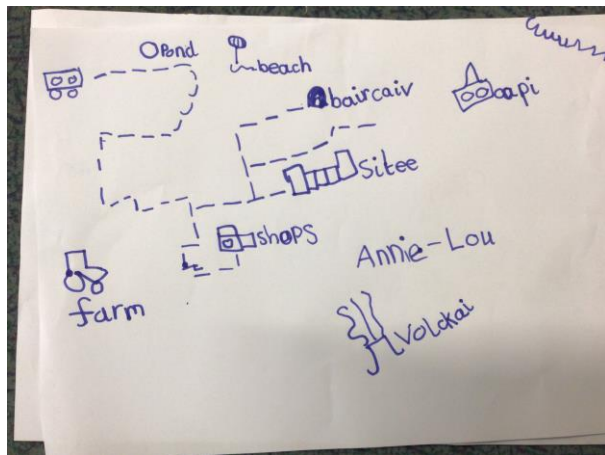 Pond
beach
baircaiv
capi
Sitee
shops
Annie-Lou
farm
Volckai